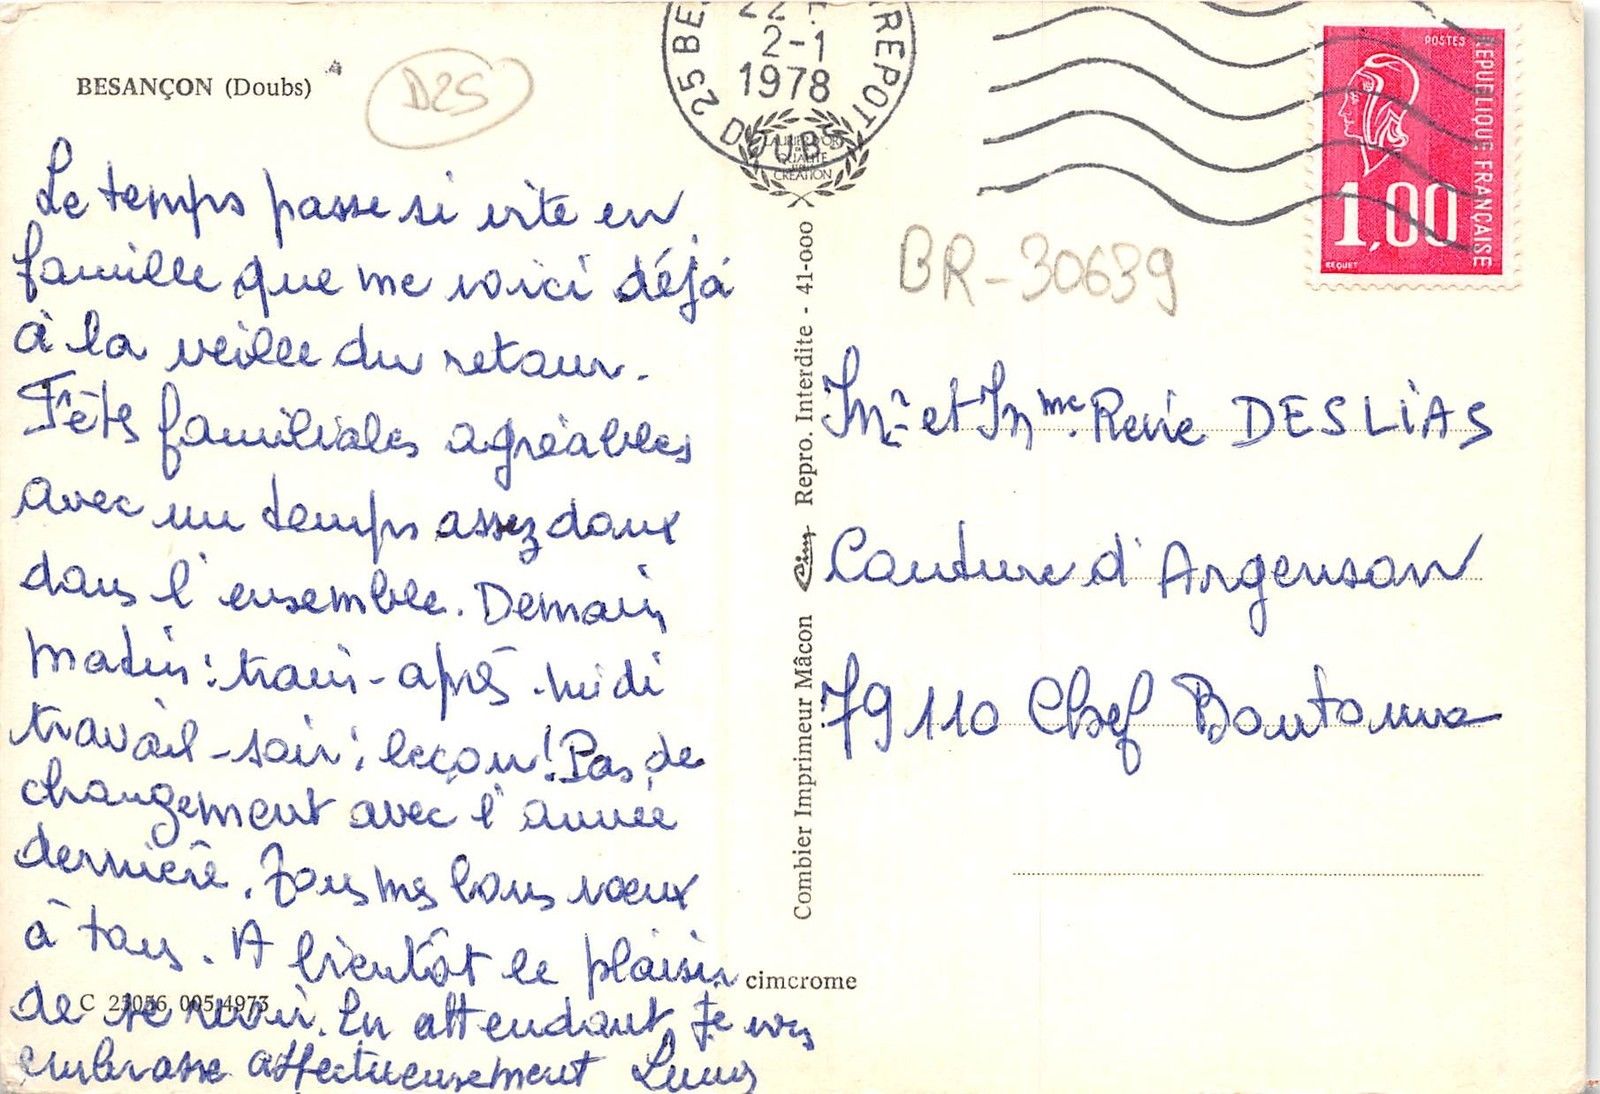 BESANÇON (Doubs)
D25
Le temps passe si vite en
famille que me voici déjà
à la veille du retour.
Fêtes familiales agréables
avec un temps assez doux
dans l'ensemble. Demain
matin : train - après-midi
travail - soir : leçon ! Pas de
changement avec l'année
dernière. Tous mes bons vœux
à tous. A bientôt le plaisir
de se revoir. En attendant je vous
embrasse affectueusement
C 25056 005 4973
cimcrome
25 BE
REPOT
2-1
1978
DOUBS
LAURIERS D'OR
QUALITÉ
CRÉATION
Combier Imprimeur Mâcon Cim Repro. Interdite - 41-000
POSTES
REPUBLIQUE FRANÇAISE
1,00
BEQUET
BR-30639
Mr et Mme René DESLIAS
Couture d'Argenson
79110 Chef Boutonne